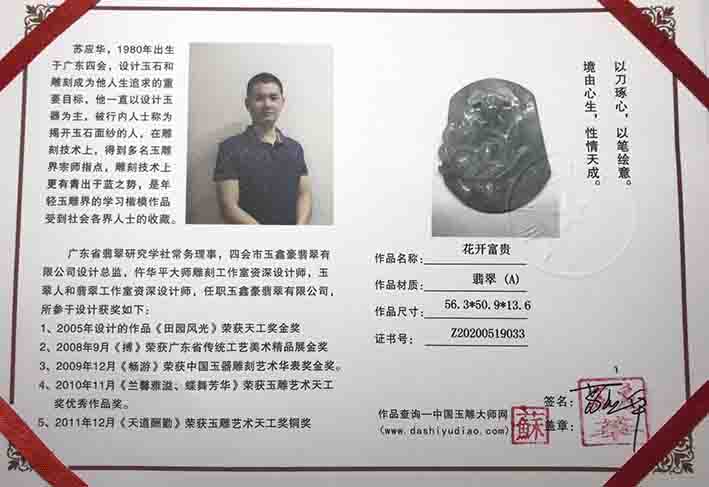 苏应华，1980年出生
于广东四会，设计玉石和
雕刻成为他人生追求的重
要目标，他一直以设计玉
器为主，被行内人士称为
揭开玉石面纱的人，在雕
刻技术上，得到多名玉雕
界宗师指点，雕刻技术上
更有青出于蓝之势，是年
轻玉雕界的学习楷模作品
受到社会各界人士的收藏。
广东省翡翠研究学社常务理事，四会市玉鑫豪翡翠有
限公司设计总监，仵华平大师雕刻工作室资深设计师，玉
翠人和翡翠工作室资深设计师，任职玉鑫豪翡翠有限公司，
所参于设计获奖如下：
1、2005年设计的作品《田园风光》荣获天工奖金奖
2、2008年9月《搏》荣获广东省传统工艺美术精品展金奖
3、2009年12月《畅游》荣获中国玉器雕刻艺术华表奖金奖。
4、2010年11月《兰馨雅溢、蝶舞芳华》荣获玉雕艺术天工
奖优秀作品奖。
5、2011年12月《天道酬勤》荣获玉雕艺术天工奖铜奖
以刀琢心，以笔绘意。
境由心生，性情天成。
作品名称：花开富贵
作品材质：翡翠 (A)
作品尺寸：56.3*50.9*13.6
证书号：Z20200519033
签名：
盖章：
作品查询—中国玉雕大师网
(www.dashiyudiao.com)
蘇